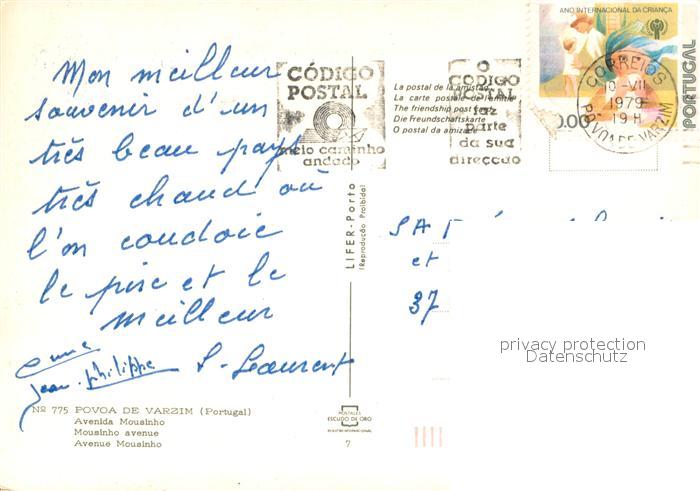 Mon meilleur
souvenir d'un
très beau pays
très chaud où
l'on coudoie
le pire et le
meilleur
Anne
Jean-Philippe S-Laurent
Nº 775 POVOA DE VARZIM (Portugal)
Avenida Mousinho
Mousinho avenue
Avenue Mousinho
CÓDIGO
POSTAL
meio caminho
andado
La postal de la amistad
La carte postale de l'amitié
The friendship post card
Die Freundschaftskarte
O postal da amizade
O
CÓDIGO
POSTAL
faz
parte
da sua
direcção
ANO INTERNACIONAL DA CRIANÇA
PORTUGAL
CORREIOS
10-VII
1979
19H
PÓVOA DE VARZIM
LIFER-Porto
(Reprodução Proibida)
POSTALES
ESCUDO DE ORO
7
et
37
privacy protection
Datenschutz